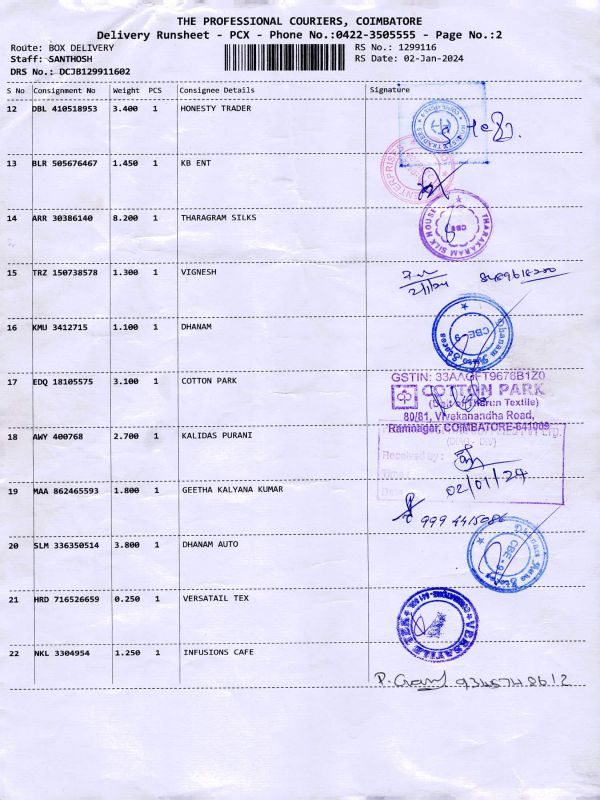 THE PROFESSIONAL COURIERS, COIMBATORE
Delivery Runsheet - PCX - Phone No.:0422-3505555 - Page No.:2
Route: BOX DELIVERY
RS No.: 1299116
Staff: SANTHOSH
RS Date: 02-Jan-2024
DRS No.: DCJB129911602
S No Consignment No Weight PCS Consignee Details Signature
12 DBL 410518953 3.400 1 HONESTY TRADER
13 BLR 505676467 1.450 1 KB ENT
ENTERPRISES
14 ARR 30386140 8.200 1 THARAGRAM SILKS
THARAKARAM SILK HOUSE
CBE
15 TRZ 150738578 1.300 1 VIGNESH
2/1/24
16 KMU 3412715 1.100 1 DHANAM
Dhanam Auto Stores
CBE-9
17 EDQ 18105575 3.100 1 COTTON PARK
GSTIN: 33AAGFT9676B1Z0
COTTON PARK
(Unit of Tharun Textile)
80/81, Vivekanandha Road,
Ramnagar, COIMBATORE-641009
18 AWY 400768 2.700 1 KALIDAS PURANI
Received by :
Time :
02/01/24
19 MAA 862465593 1.800 1 GEETHA KALYANA KUMAR
999 4415086
20 SLM 336350514 3.800 1 DHANAM AUTO
CBE-9
21 HRD 716526659 0.250 1 VERSATAIL TEX
22 NKL 3304954 1.250 1 INFUSIONS CAFE